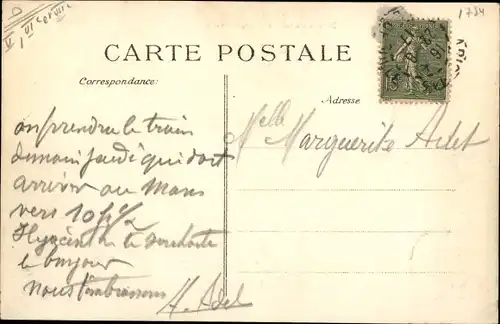 1784
CARTE POSTALE
Correspondance:
Adresse
on prendra le train
demain jeudi qui doit
arriver au Mans
vers 10h ½
Hyacinthe te souhaite
le bonjour
nous t'embrassons
A. Adet
Melle Marguerite Adet